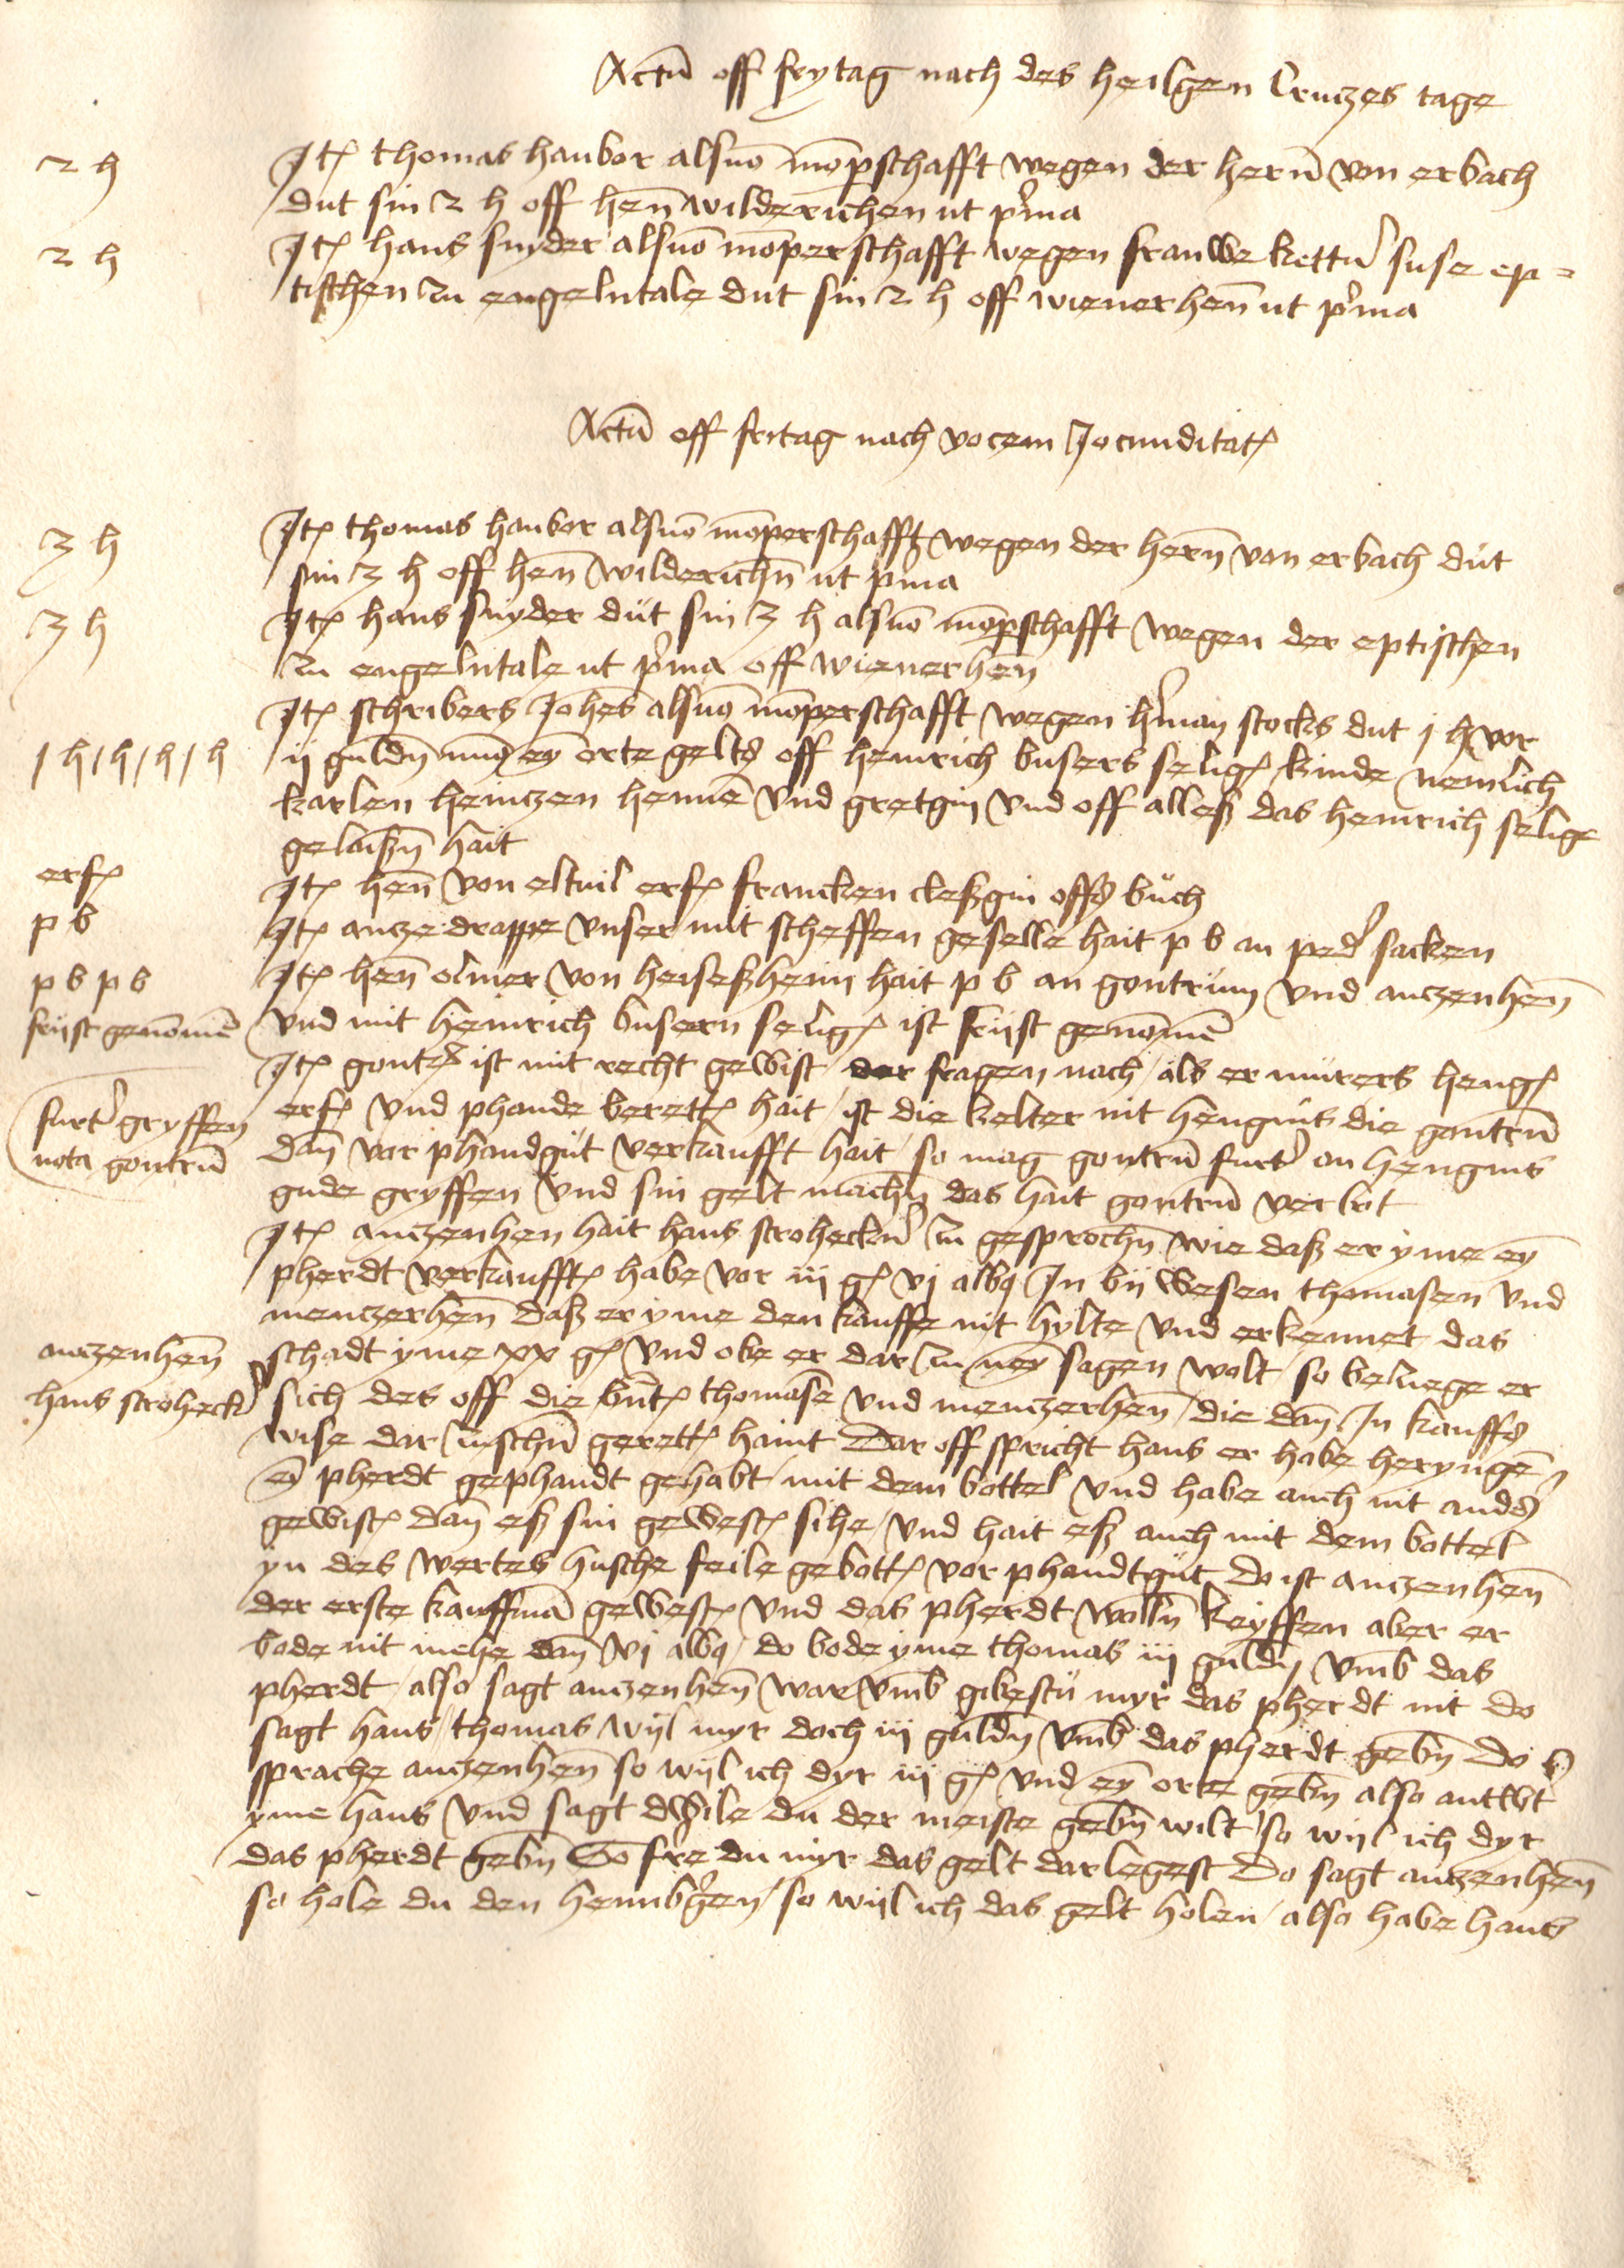 Actum off frytag nach des heilgen Cruczes tage
2 h
Itē thomas haubor alsuō mōpschafft wegen der hern̄ von erbach
dut sin 2 h off hen̄ wilderichen ut p̃ma
2 h
Itē hans snyder alsuō mōperschafft wegen frauwe kettern̄ suse ep=
tischen zu engelntale dut sin 2 h off wienerhen̄ ut p̃ma
Actū off fritag nach vocem Jocunditatē
3 h
Itē thomas haubor alsuō mōperschafft wegen der hern̄ von erbach dut
sin 3 h off hen̄ wilderichn̄ ut p̃ma
3 h
Itē hans snyder dut sin 3 h alsuō mōpschafft wegen der eptischen
zu engelntale ut p̃ma off wienerhen̄
Itē schribers Johēs alsuō mōperschafft wegen h̃man stocks dut j h vor
1 h 1 h 1 h 1 h
ij guldn̄ mỹ eỹ orte gelts off heinrich busers seligē kinde nemlich
karlen heinczen hennē vnd gretgin vnd off alleß das heinrich selige
gelaißn̄ hait
erfē
Itē hen̄ von eltuil erfē francken cleßgin offs buch
p b
Itē ancze drappe vnser mit scheffen geselle hait p b an ped̃ sacken
p b p b
Itē hen̄ olmer von heiseßheim hait p b an gontrum vnd anczenhen̄
frijst genomē
vnd mit heinrich busern seligē ist frijst genomē
Itē gontrū ist mit recht gewist der fragen nach als er murers hengē
furt̃ gryffen
erfē vnd phande beredtē hait ist die kelter nit hengins die gontrū
nota gontrū
dan̄ vor phandgut verkaufft hait so mag gontrū furt̃ an hengins
gude gryffen vnd sin gelt machn̄ das hait gontrū verbot
Itē anczenhen hait hans stroheckern̄ zu gesprochn̄ wie daß er yme eỹ
pherdt verkaufftē habe vor iij gē vj albq In bij wesen thomasen vnd
menczerhen̄ daß er yme den kauffe nit hylte vnd erkennet das
anczenhen̄
schadt yme xx gē vnd obe er dar zu neỹ sagen wolt so beziege er
hans stroheck̃
sich des off die kuntē thomasē vnd menczerhen̄ die dan̄ In kauffs
wise dar zuschn̄ geredtē haint Dar off spricht hans er habe heryngē
eỹ pherdt gephandt gehabt mit dem bottel vnd habe auch nit anders
gewistē dan̄ eß sin gewestē sihe vnd hait eß auch mit dem bottel
yn des wertes husche feile gebottē vor phandtgut Do ist anczenhen̄
der erste kauffmā gewestē vnd das pherdt wolln̄ keyffen aber er
bode nit mehe dan̄ vj albq do bode yme thomas iij guldn̄ vmb das
pherdt also sagt anczenhen̄ war vmb gibestu myr das pherdt nit do
sagt hans thomas wijl myr doch iij guldn̄ vmb das pherdt gebn̄ Do
sprache anczenhen̄ so wijl ich dyr iij gē vnd eỹ orte gebn̄ also antwt̃
yme hans vnd sagt dwile du der meiste gebn̄ wilt so wijl ich dyr
das pherdt gebn̄ So fre du myr das gelt darlegest Do sagt anczenhen̄
so hole du den heimb̃gen so wijl ich das gelt holen also habe hans